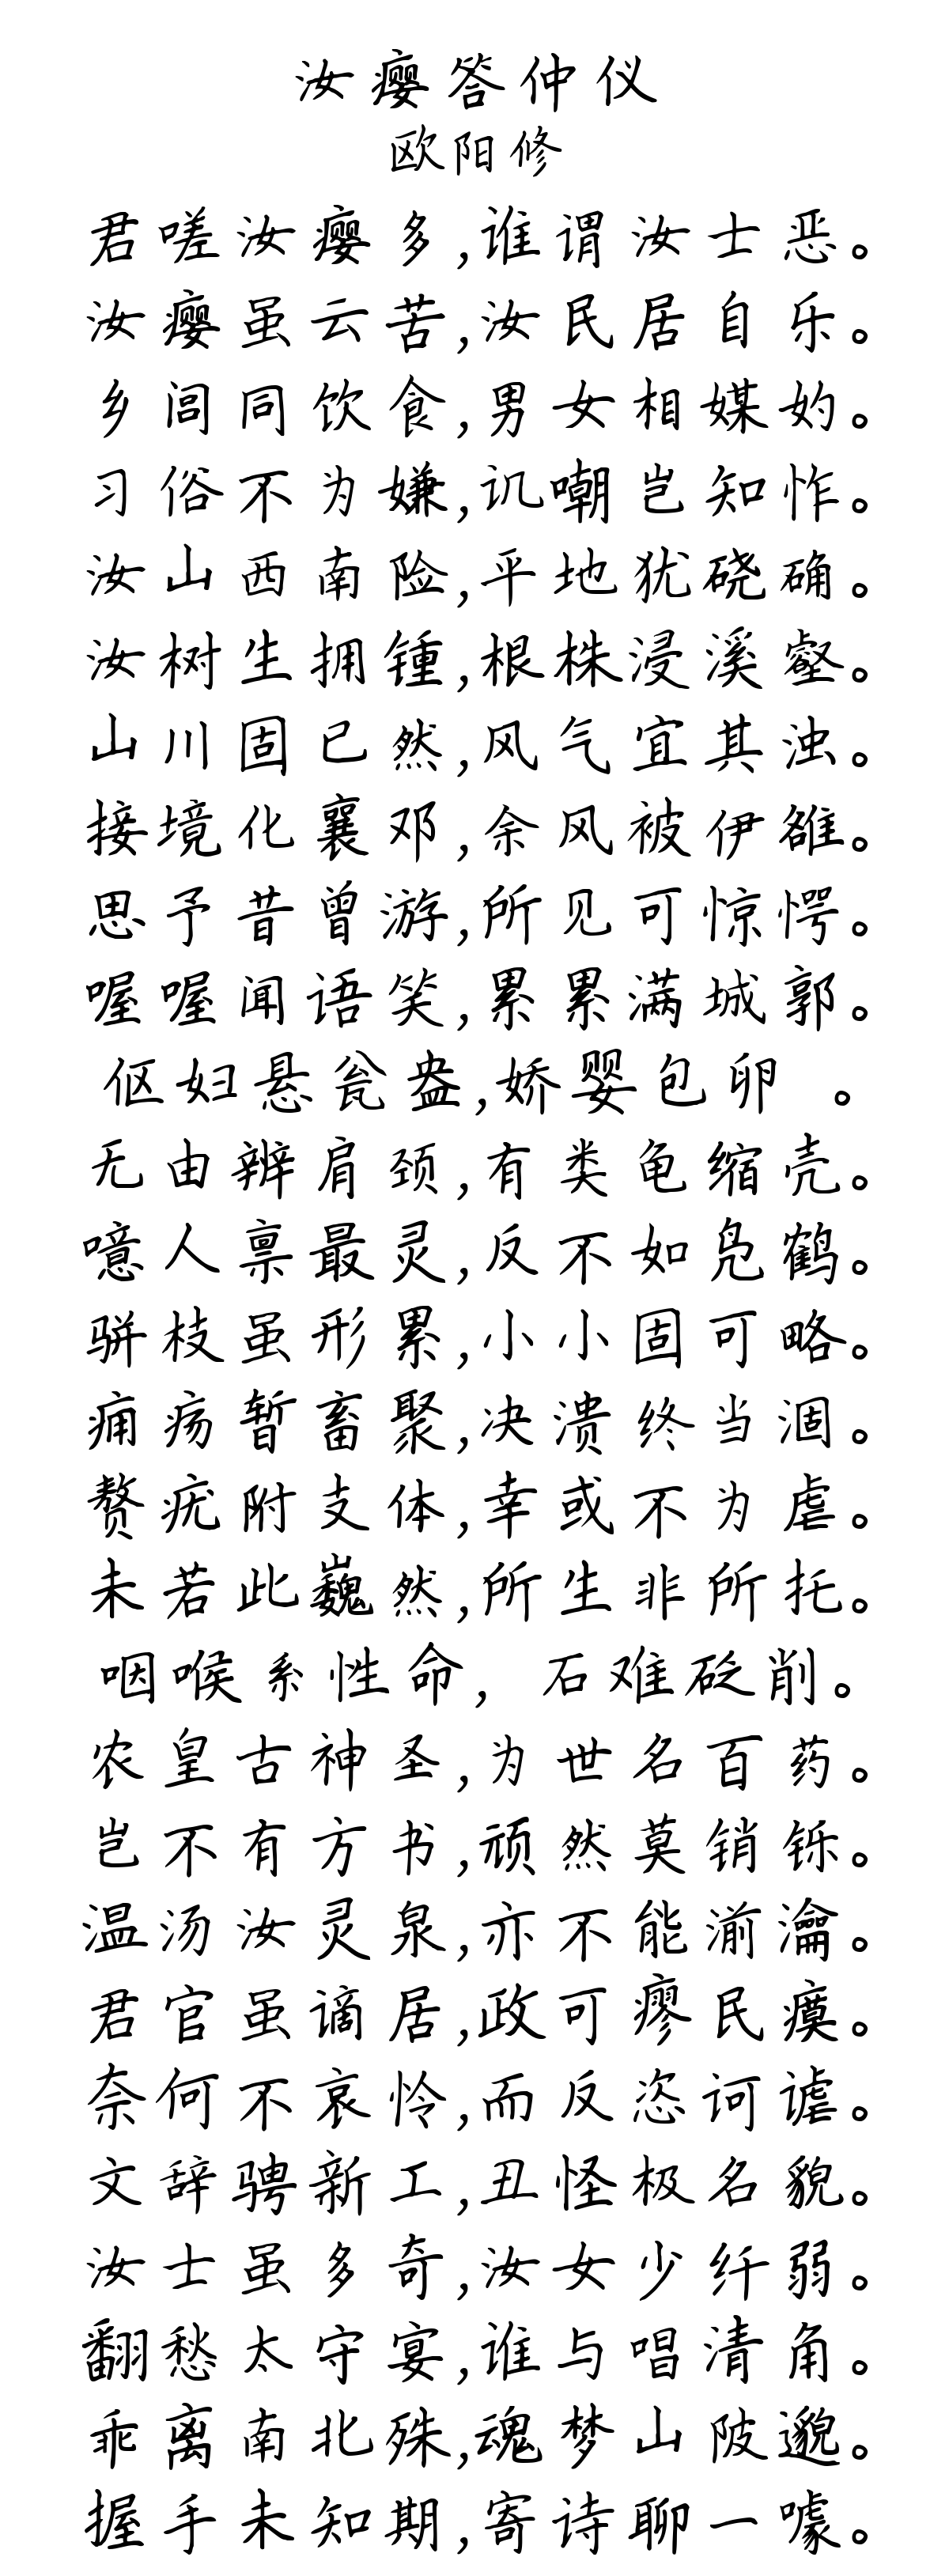 汝瘿答仲仪
欧阳修
君嗟汝瘿多,谁谓汝士恶。
汝瘿虽云苦,汝民居自乐。
乡闾同饮食,男女相媒妁。
习俗不为嫌,讥嘲岂知怍。
汝山西南险,平地犹硗确。
汝树生拥锺,根株浸溪壑。
山川固已然,风气宜其浊。
接境化襄邓,余风被伊雒。
思予昔曾游,所见可惊愕。
喔喔闻语笑,累累满城郭。
伛妇悬瓮盎,娇婴包卵 。
无由辨肩颈,有类龟缩壳。
噫人禀最灵,反不如凫鹤。
骈枝虽形累,小小固可略。
痈疡暂畜聚,决溃终当涸。
赘疣附支体,幸或不为虐。
未若此巍然,所生非所托。
咽喉系性命, 石难砭削。
农皇古神圣,为世名百药。
岂不有方书,顽然莫销铄。
温汤汝灵泉,亦不能湔瀹。
君官虽谪居,政可瘳民瘼。
奈何不哀怜,而反恣诃谑。
文辞骋新工,丑怪极名貌。
汝士虽多奇,汝女少纤弱。
翻愁太守宴,谁与唱清角。
乖离南北殊,魂梦山陂邈。
握手未知期,寄诗聊一噱。